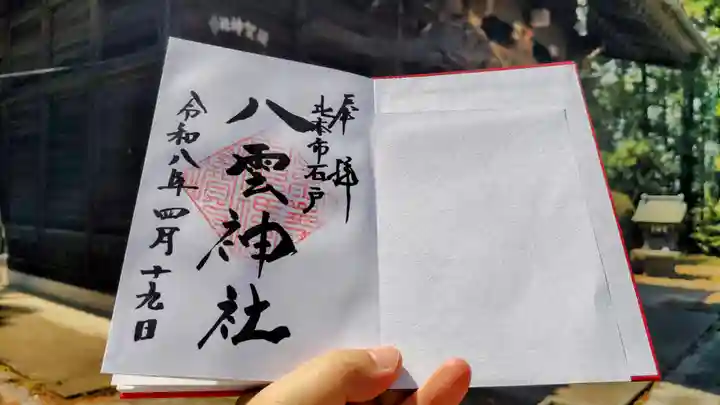 奉拝
北本市石戸
八雲神社
令和八年四月十九日